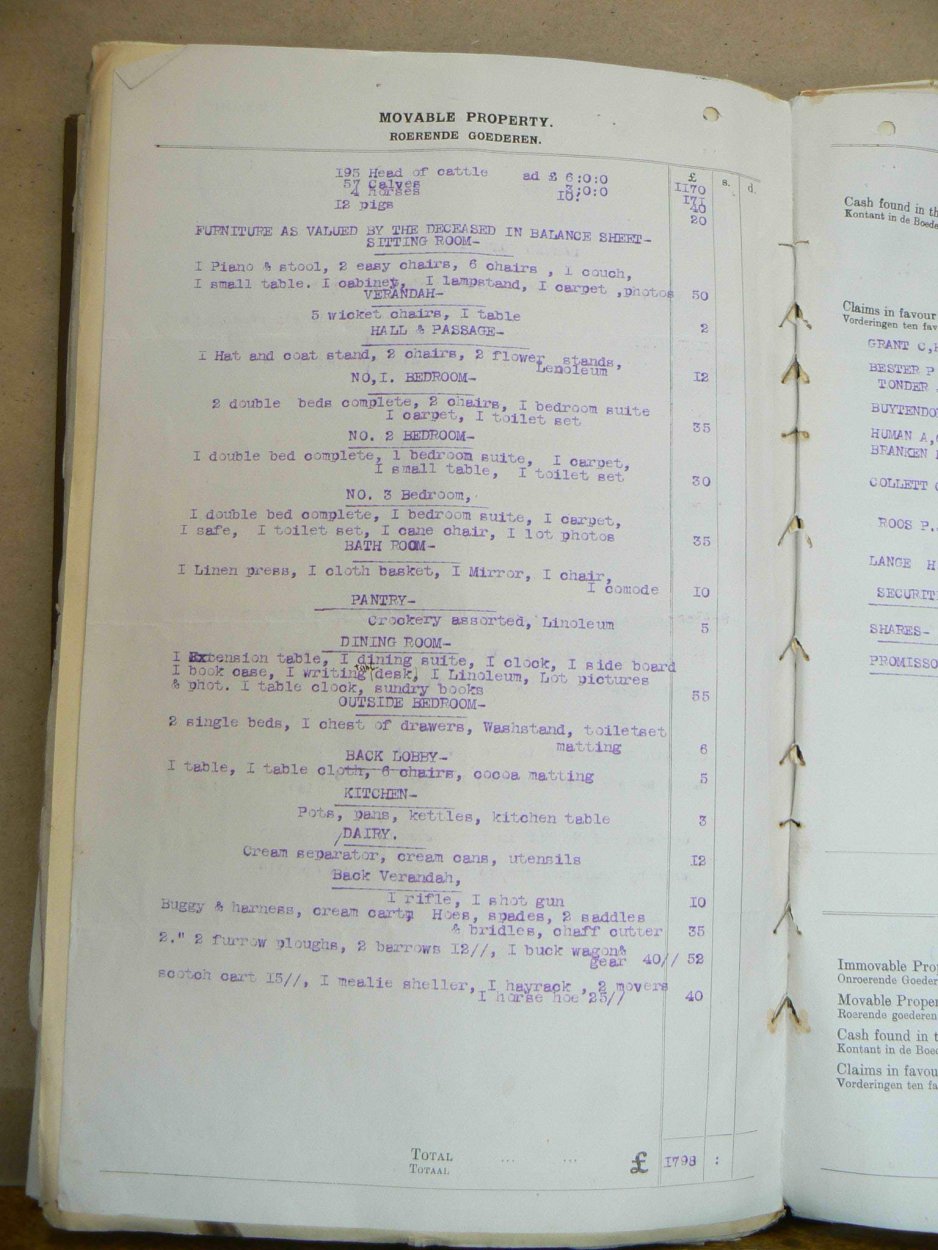 MOVABLE PROPERTY.
ROERENDE GOEDEREN.
£ s. d.
195 Head of cattle ad £ 6:0:0 1170
57 Calves 3:0:0 171
4 Horses 10: 40
12 pigs 20
FURNITURE AS VALUED BY THE DECEASED IN BALANCE SHEET-
SITTING ROOM-
I Piano & stool, 2 easy chairs, 6 chairs , 1 couch,
I small table. I cabinet, I lampstand, I carpet ,photos 50
VERANDAH-
5 wicket chairs, I table 2
HALL & PASSAGE-
I Hat and coat stand, 2 chairs, 2 flower stands,
Lenoleum 12
NO,I. BEDROOM-
2 double beds complete, 2 chairs, I bedroom suite
I carpet, I toilet set 35
NO. 2 BEDROOM-
I double bed complete, 1 bedroom suite, I carpet,
I small table, I toilet set 30
NO. 3 Bedroom,
I double bed complete, I bedroom suite, I carpet,
I safe, I toilet set, I cane chair, I lot photos 35
BATH ROOM-
I Linen press, I cloth basket, I Mirror, I chair,
I comode 10
PANTRY-
Crockery assorted, Linoleum 5
DINING ROOM-
I Extension table, I dining suite, I clock, I side board
I book case, I writing desk, I Linoleum, Lot pictures
& phot. I table clock, sundry books 55
OUTSIDE BEDROOM-
2 single beds, I chest of drawers, Washstand, toiletset
matting 6
BACK LOBBY-
I table, I table cloth, 6 chairs, cocoa matting 5
KITCHEN-
Pots, pans, kettles, kitchen table 3
/DAIRY.
Cream separator, cream cans, utensils 12
Back Verandah,
I rifle, I shot gun 10
Buggy & harness, cream cart, Hoes, spades, 2 saddles
& bridles, chaff cutter 35
2." 2 furrow ploughs, 2 barrows 12//, I buck wagon&
gear 40// 52
scotch cart 15//, I mealie sheller, I hayrack , 2 movers
I horse hoe 25// 40
TOTAL ... ... £ 1798 :
TOTAAL
Cash found in th
Kontant in de Boede
Claims in favour
Vorderingen ten fav
GRANT C,
BESTER P
TONDER
BUYTENDO
HUMAN A,
BRANKEN
COLLETT C
ROOS P.
LANGE H
SECURIT
SHARES-
PROMISSO
Immovable Prop
Onroerende Goeder
Movable Proper
Roerende goederen
Cash found in t
Kontant in de Boe
Claims in favou
Vorderingen ten fa